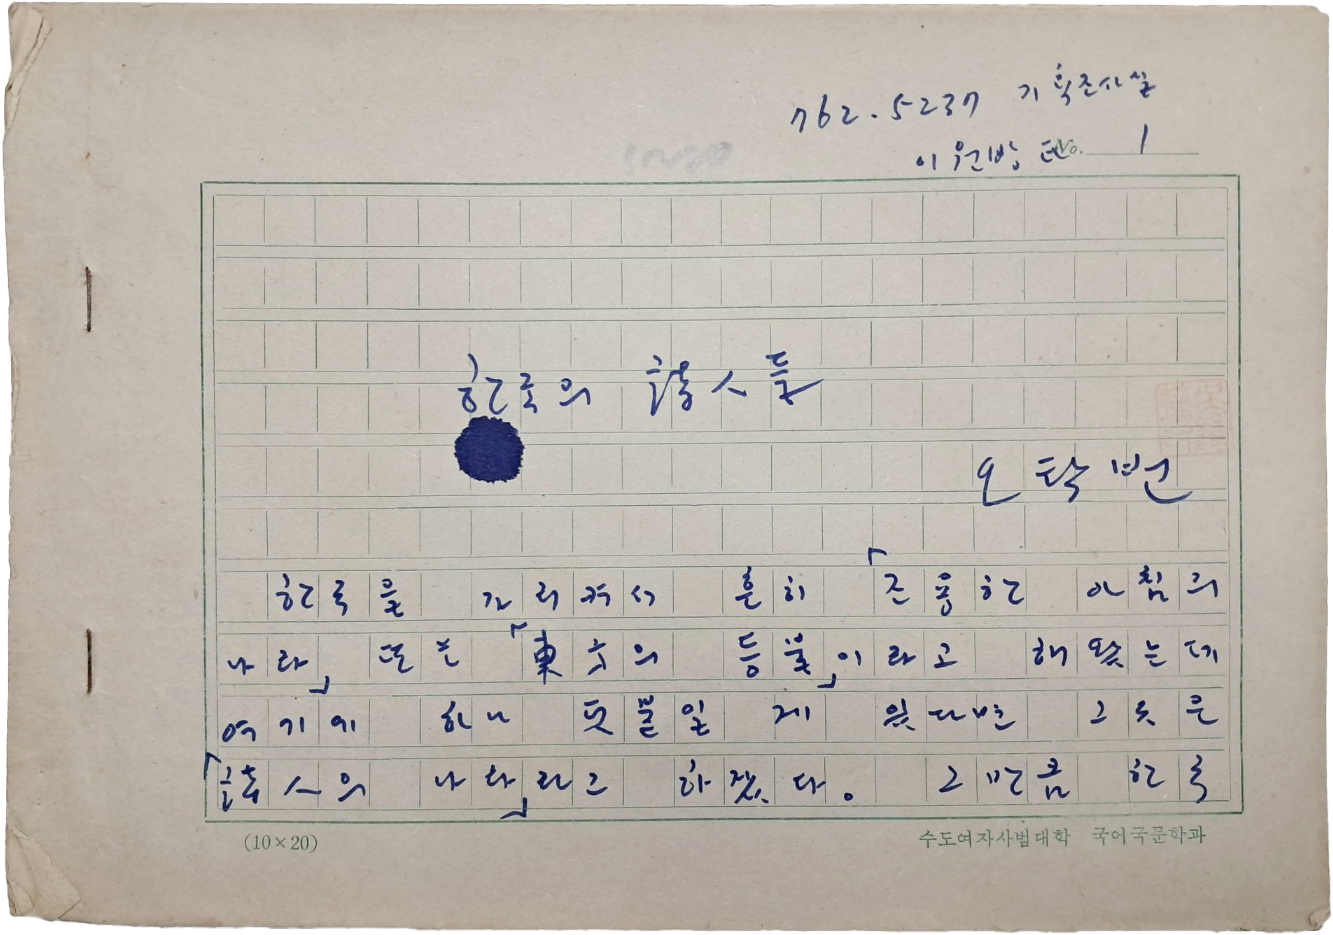 762.5237 기획조사실
No. 1
한국의 詩人들
오탁번
한국을 가리켜서 흔히 「조용한 아침의
나라」 또는 「東方의 등불」이라고 해 왔는데
여기에 하나 덧붙일 게 있다면 그것은
「詩人의 나라」라고 하겠다. 그만큼 한국
(10×20) 수도여자사범대학 국어국문학과